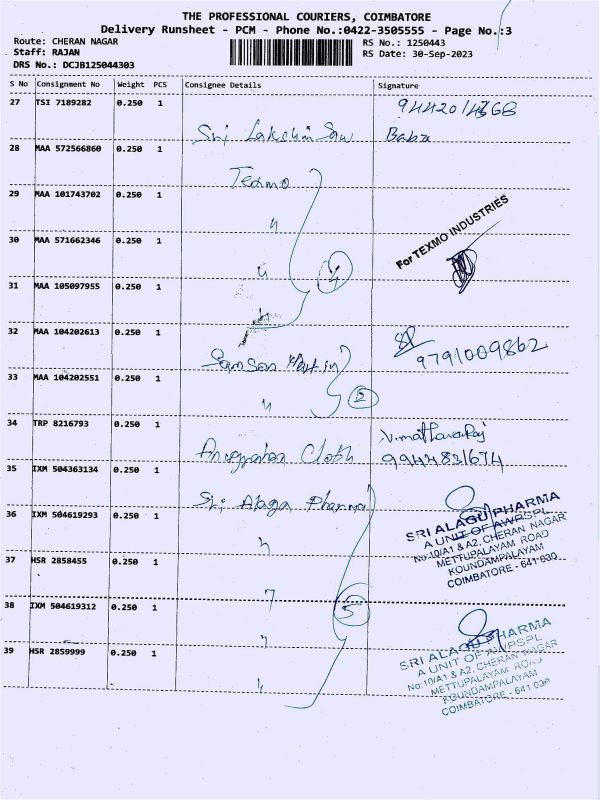 THE PROFESSIONAL COURIERS, COIMBATORE
Delivery Runsheet - PCM - Phone No.:0422-3505555 - Page No.:3
Route: CHERAN NAGAR
RS No.: 1250443
Staff: RAJAN
RS Date: 30-Sep-2023
DRS No.: DCJB125044303
S No Consignment No Weight PCS Consignee Details Signature
27 TSI 7189282 0.250 1 Sri Lakshmi 94420
Babu
28 MAA 572566860 0.250 1 Texmo
29 MAA 101743702 0.250 1 "
For TEXMO INDUSTRIES
30 MAA 571662346 0.250 1 "
4
31 MAA 105097955 0.250 1 "
32 MAA 104202613 0.250 1 Samson Martin 9791009862
33 MAA 104202551 0.250 1 "
2
34 TRP 8216793 0.250 1 Cloth
9944831674
35 IXM 504363134 0.250 1 Sri Alaga Pharma
36 IXM 504619293 0.250 1 "
SRI ALAGU PHARMA
A UNIT OF AWPSPL
No:10/A1 & A2, CHERAN NAGAR
METTUPALAYAM ROAD
KOUNDAMPALAYAM
COIMBATORE - 641 030
37 HSR 2858455 0.250 1 "
38 IXM 504619312 0.250 1 "
5
39 HSR 2859999 0.250 1 "
SRI ALAGU PHARMA
A UNIT OF AWPSPL
No:10/A1 & A2, CHERAN NAGAR
METTUPALAYAM ROAD
KOUNDAMPALAYAM
COIMBATORE - 641 030